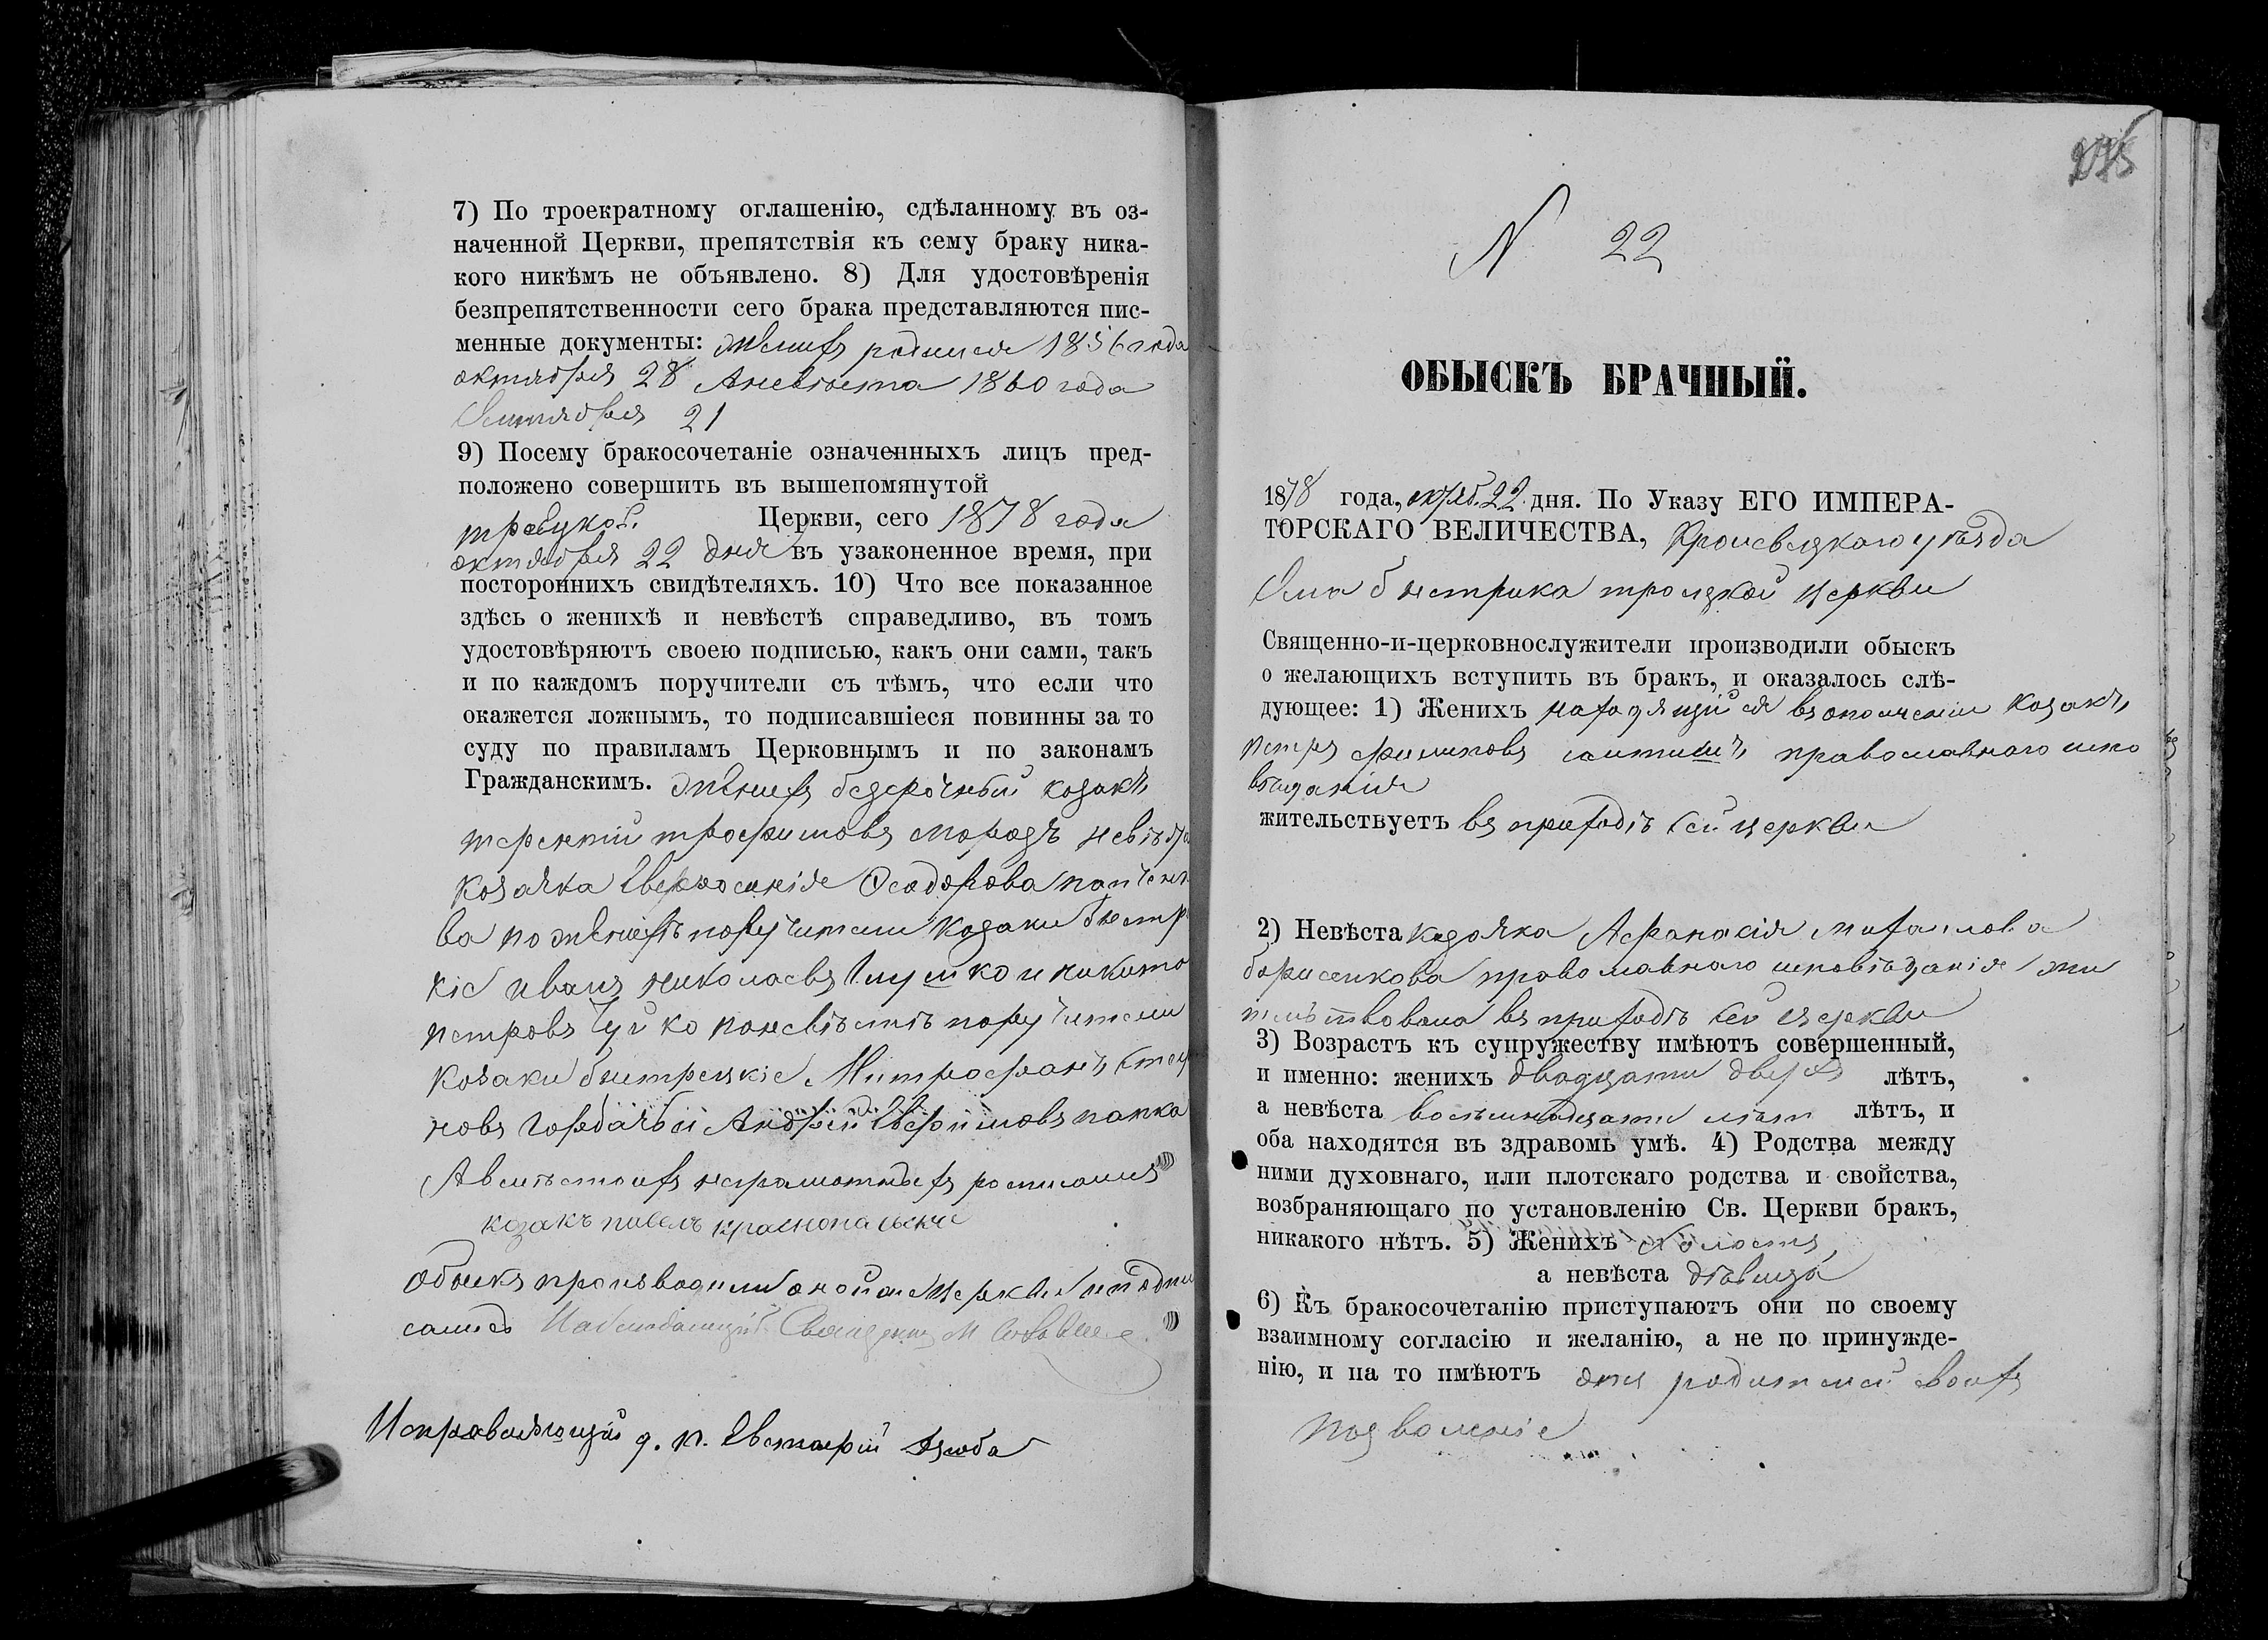 7) По троекратному оглашенію, сдѣланному въ оз-
наченной Церкви, препятствія къ сему браку ника-
кого никѣмъ не объявлено. 8) Для удостовѣренія
безпрепятственности сего брака представляются пис-
менные документы: женихъ родился 1856 года
октября 28 Аневѣста 1860 года
Сентября 21
9) Посему бракосочетаніе означенныхъ лицъ пред-
положено совершить въ вышепомянутой
троицкой Церкви, сего 1878 года
октября 22 дня въ узаконенное время, при
постороннихъ свидѣтеляхъ. 10) Что все показанное
здѣсь о женихѣ и невѣстѣ справедливо, въ томъ
удостовѣряютъ своею подписью, какъ они сами, такъ
и по каждомъ поручители съ тѣмъ, что если что
окажется ложнымъ, то подписавшіеся повинны за то
суду по правиламъ Церковнымъ и по законамъ
Гражданскимъ. женихъ безсрочный козакъ
терентій трофимовъ морозъ
козачка Феодорова
ва по женихѣ поручители козаки быстр
кіе иванъ николаевъ и никита
петровъ поневѣстѣ поручители
козаки быстрецкіе Митрофанъ
новъ горбачый Андрій Ефимовъ папка
Авмѣсто ихъ неграмотныхъ росписался
козакъ павелъ
обыскъ производили оной же церкви и подпи
сались Священникъ М
Исправляющій д. п. Евстафій Дзюба
275
N 22
ОБЫСКЪ БРАЧНЫЙ.
1878 года, октяб. 22 дня. По Указу ЕГО ИМПЕРА-
ТОРСКАГО ВЕЛИЧЕСТВА, Кролевецкаго уѣзда
Села быстрика троицкой церкви
Священно-и-церковнослужители производили обыскъ
о желающихъ вступить въ бракъ, и оказалось слѣ-
дующее: 1) Женихъ находящійся въ ополченіи козакъ
петръ филиповъ православного испо
вѣданія
жительствуетъ въ приходѣ сей церкви
2) Невѣста козачка Афанасія михаилова
борисенкова православнаго исповѣданія жи
тельствовала въ приходѣ сей церкви
3) Возрастъ къ супружеству имѣютъ совершенный,
и именно: женихъ двадцати двухъ лѣтъ,
а невѣста восьмнадцати лѣтъ лѣтъ, и
оба находятся въ здравомъ умѣ. 4) Родства между
ними духовнаго, или плотскаго родства и свойства,
возбраняющаго по установленію Св. Церкви бракъ,
никакого нѣтъ. 5) Женихъ холостъ,
а невѣста дѣвица
6) Къ бракосочетанію приступаютъ они по своему
взаимному согласію и желанію, а не по принужде-
нію, и на то имѣютъ отъ родителей своихъ
позволеніе